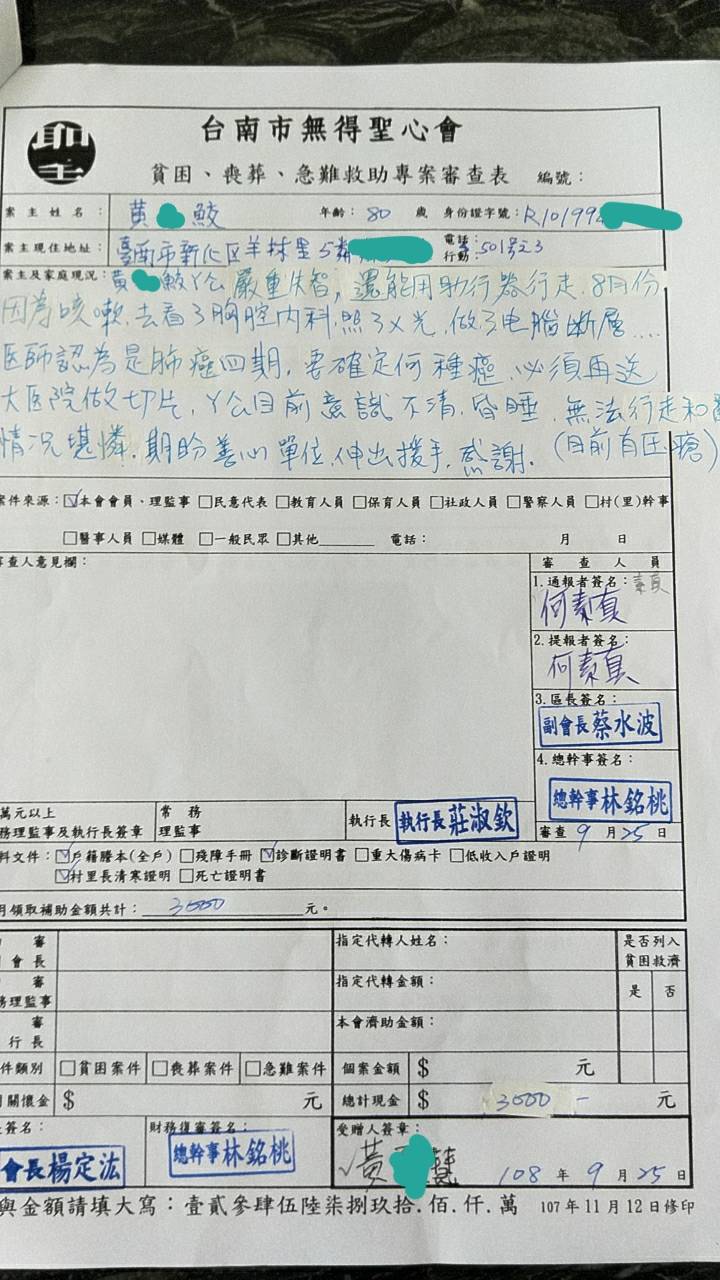 聖
台南市無得聖心會
貧困、喪葬、急難救助專案審查表 編號：
案主姓名： 黃 鮫 年齡：80 歲 身份證字號：R10199
案主現住地址： 臺南市新化区羊林里5鄰 電話： 行動： 501号23
案主及家庭現況：黃 鮫丫公 嚴重失智，還能用助行器行走．8月份
因為咳嗽．去看了胸腔內科．照了X光，做了电腦断層....
医師認為是肺癌四期，要確定何種癌．必須再送
大医院做切片，丫公目前意識不清．昏睡．無法行走和
情況堪憐．期盼善心單位．伸出援手．感謝．(目前有压瘡)
案件來源：☑本會會員、理監事 □民意代表 □教育人員 □保育人員 □社政人員 □警察人員 □村(里)幹事
□醫事人員 □媒體 □一般民眾 □其他 電話： 月 日
審查人意見欄：
審查人員
1.通報者簽名：素真
何素真
2.提報者簽名：
何素真
3.區長簽名：
副會長 蔡水波
4.總幹事簽名：
總幹事 林銘桃
審查 9 月 25 日
萬元以上
務理監事及執行長簽章
常務
理監事
執行長 執行長 莊淑欽
料文件：☑戶籍謄本(全戶) □殘障手冊 ☑診斷證明書 □重大傷病卡 □低收入戶證明
☑村里長清寒證明 □死亡證明書
月領取補助金額共計： 3000 元。
審
會長
審
務理監事
審
行長
指定代轉人姓名：
指定代轉金額：
本會濟助金額：
是否列入
貧困救濟
是 否
件類別 □貧困案件 □喪葬案件 □急難案件 個案金額 $ 元
關懷金 $ 元 總計現金 $ 3000 - 元
簽名：
會長 楊定浤
財務復審簽名：
總幹事 林銘桃
受贈人簽章：
✓黃
108 年 9 月 25 日
與金額請填大寫：壹貳參肆伍陸柒捌玖拾.佰.仟.萬 107年11月12日修印